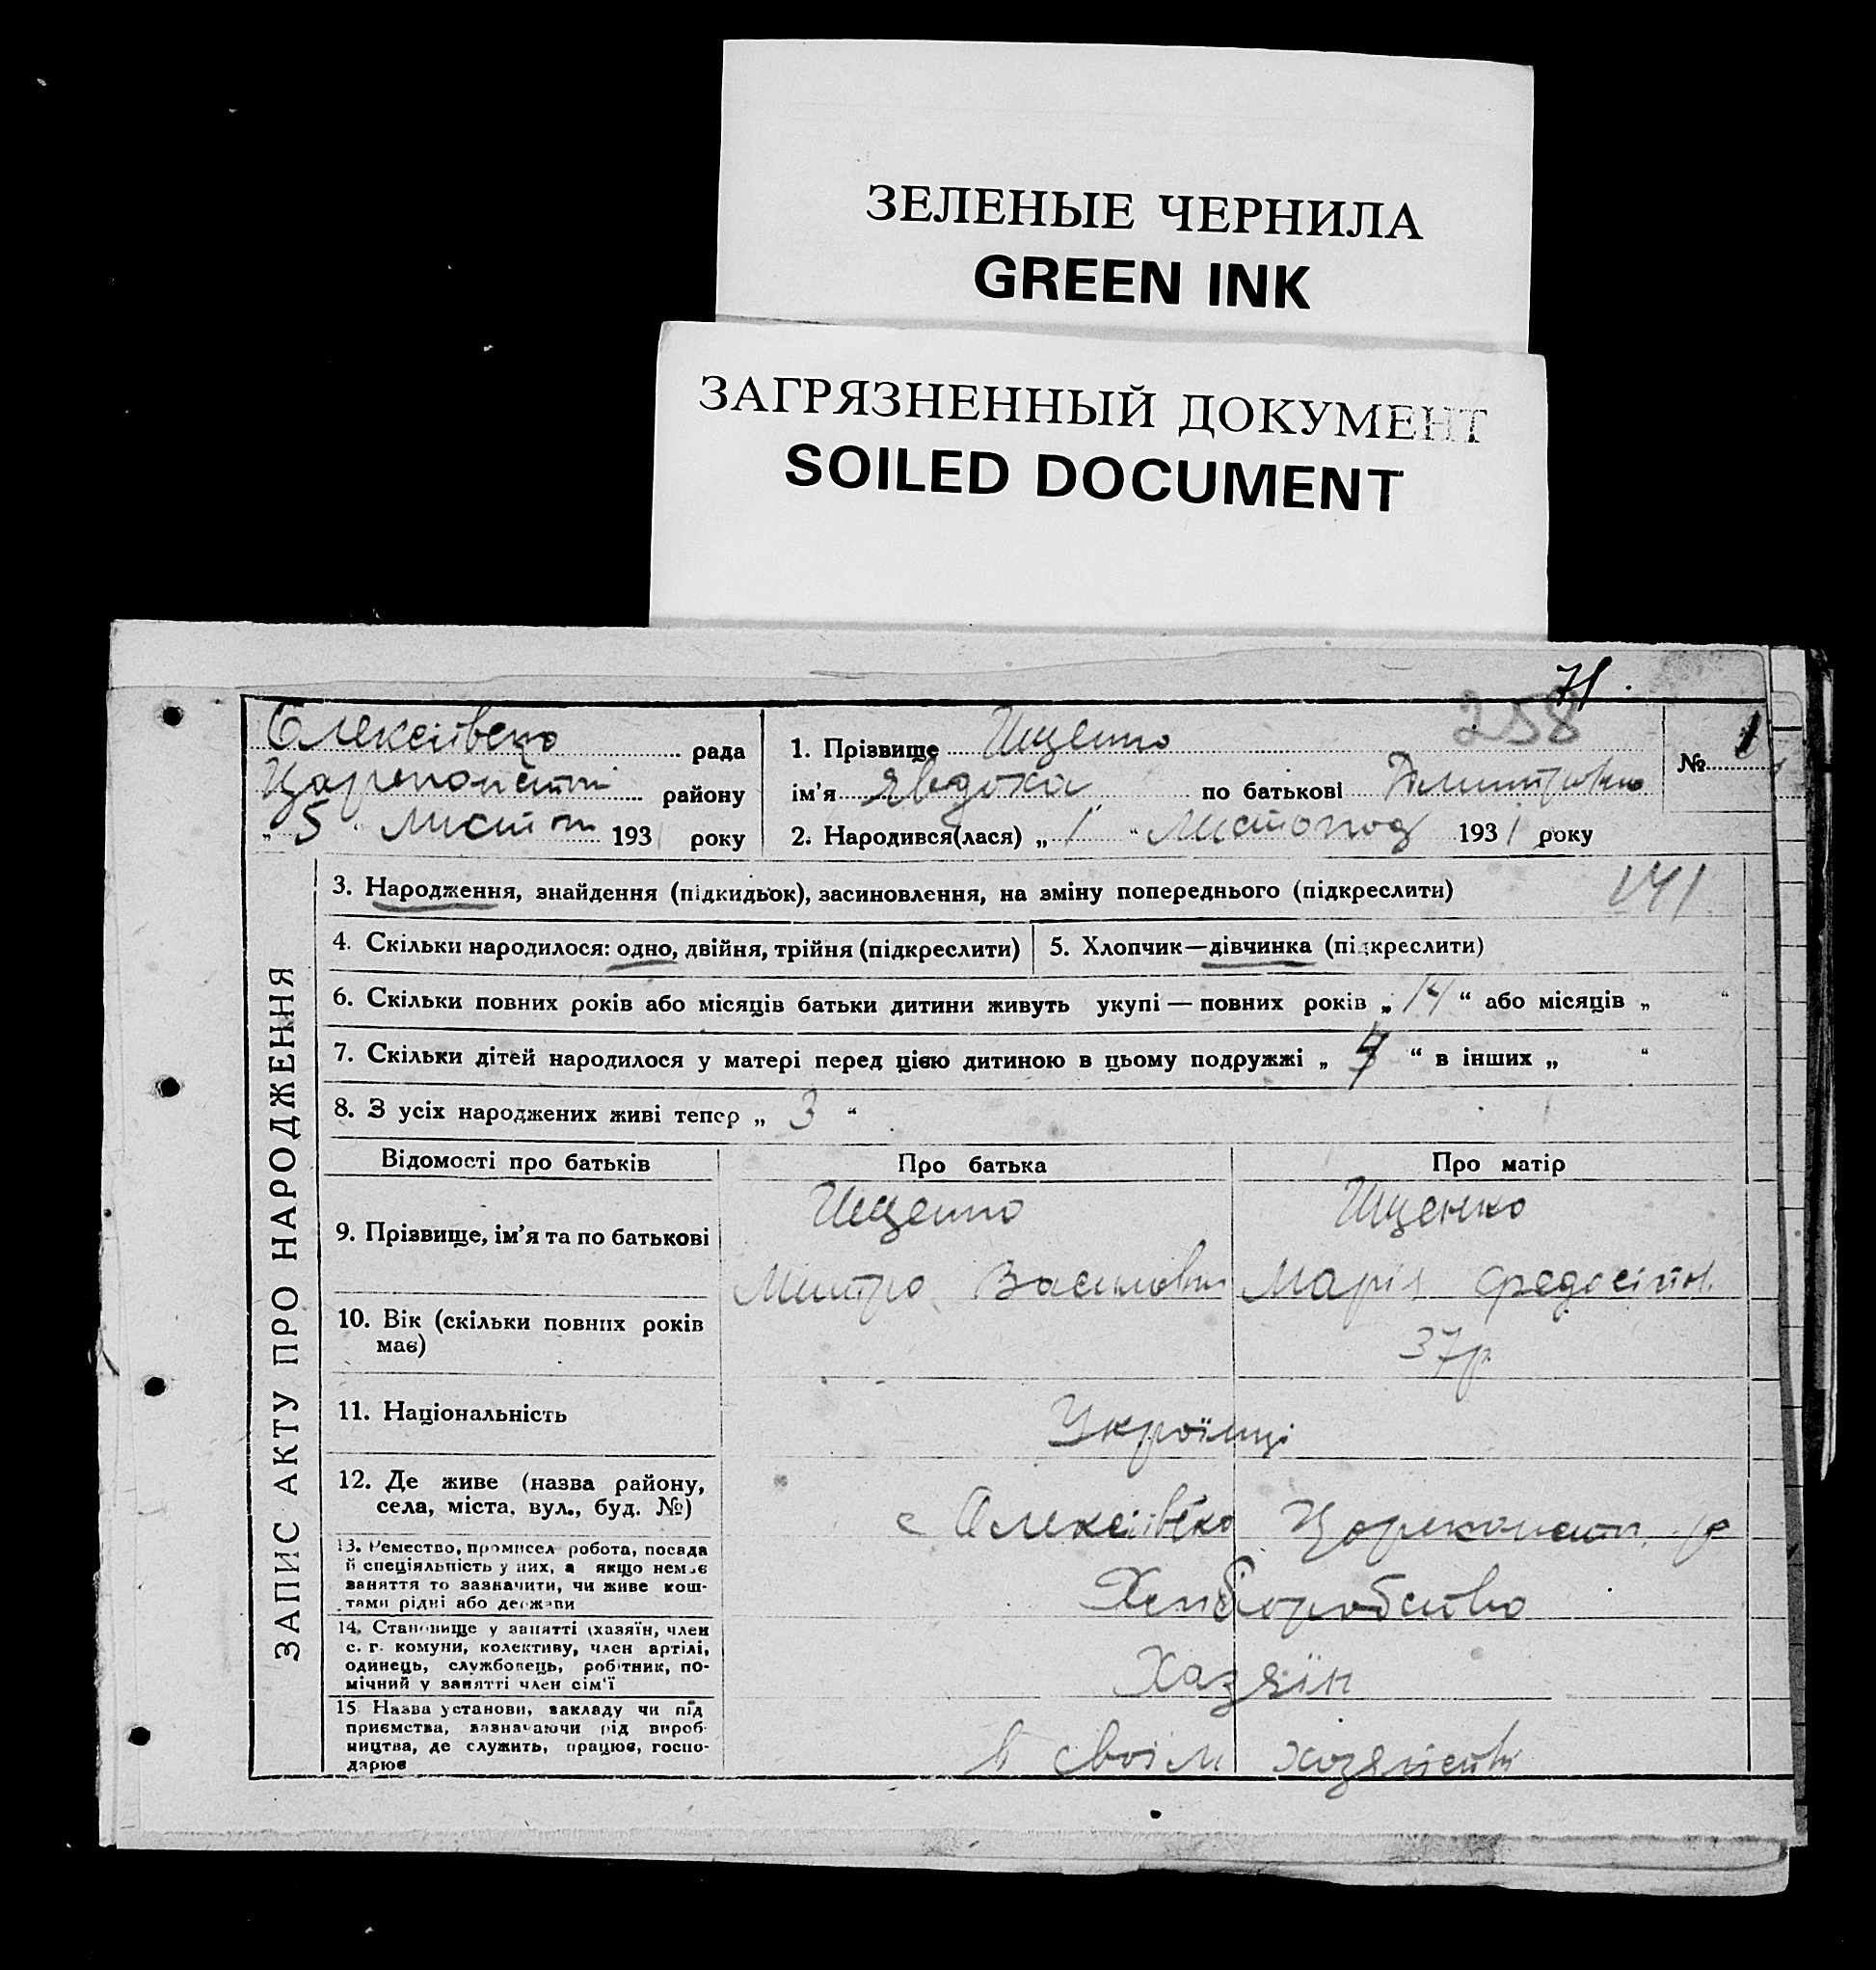 ЗЕЛЕНЫЕ ЧЕРНИЛА
GREEN INK
ЗАГРЯЗНЕННЫЙ ДОКУМЕНТ
SOILED DOCUMENT
71.
258
Олексіївсько рада
района району
„ 5 " Листоп 1931 року
1. Прізвище Іщенко
№ 1
ім'я Явдоха по батькові Дмитрівно
2. Народився(лася) „ 1 " Листопод 1931 року
ЗАПИС АКТУ ПРО НАРОДЖЕННЯ
3. Народження, знайдення (підкидьок), засиновлення, на зміну попереднього (підкреслити)
141
4. Скільки народилося: одно, двійня, трійня (підкреслити)
5. Хлопчик—дівчинка (підкреслити)
6. Скільки повних років або місяців батьки дитини живуть укупі — повних років „ 14 " або місяців „ "
7. Скільки дітей народилося у матері перед цією дитиною в цьому подружжі „ 4 " в інших „ "
8. З усіх народжених живі тепер „ 3 "
Відомості про батьків Про батька Про матір
9. Прізвище, ім'я та по батькові
Іщенко Іщенко
Митро Василович Марія Федосіївн.
10. Вік (скільки повних років має)
37р
11. Національність
Українці
12. Де живе (назва району, села, міста, вул., буд. №)
с Олексіївко Цареконст. р
13. Ремество, промисел робота, посада й спеціяльність у них, а якщо немає заняття то зазначити, чи живе коштами рідні або держави
Хліборобство
14. Становище у занятті (хазяїн, член с. г. комуни, колективу, член артілі, одинець, службовець, робітник, помічний у занятті член сім'ї
Хазяїн
15. Назва установи, закладу чи підприємства, зазначаючи рід виробництва, де служить, працює, господарює
в своїм хозяйстві